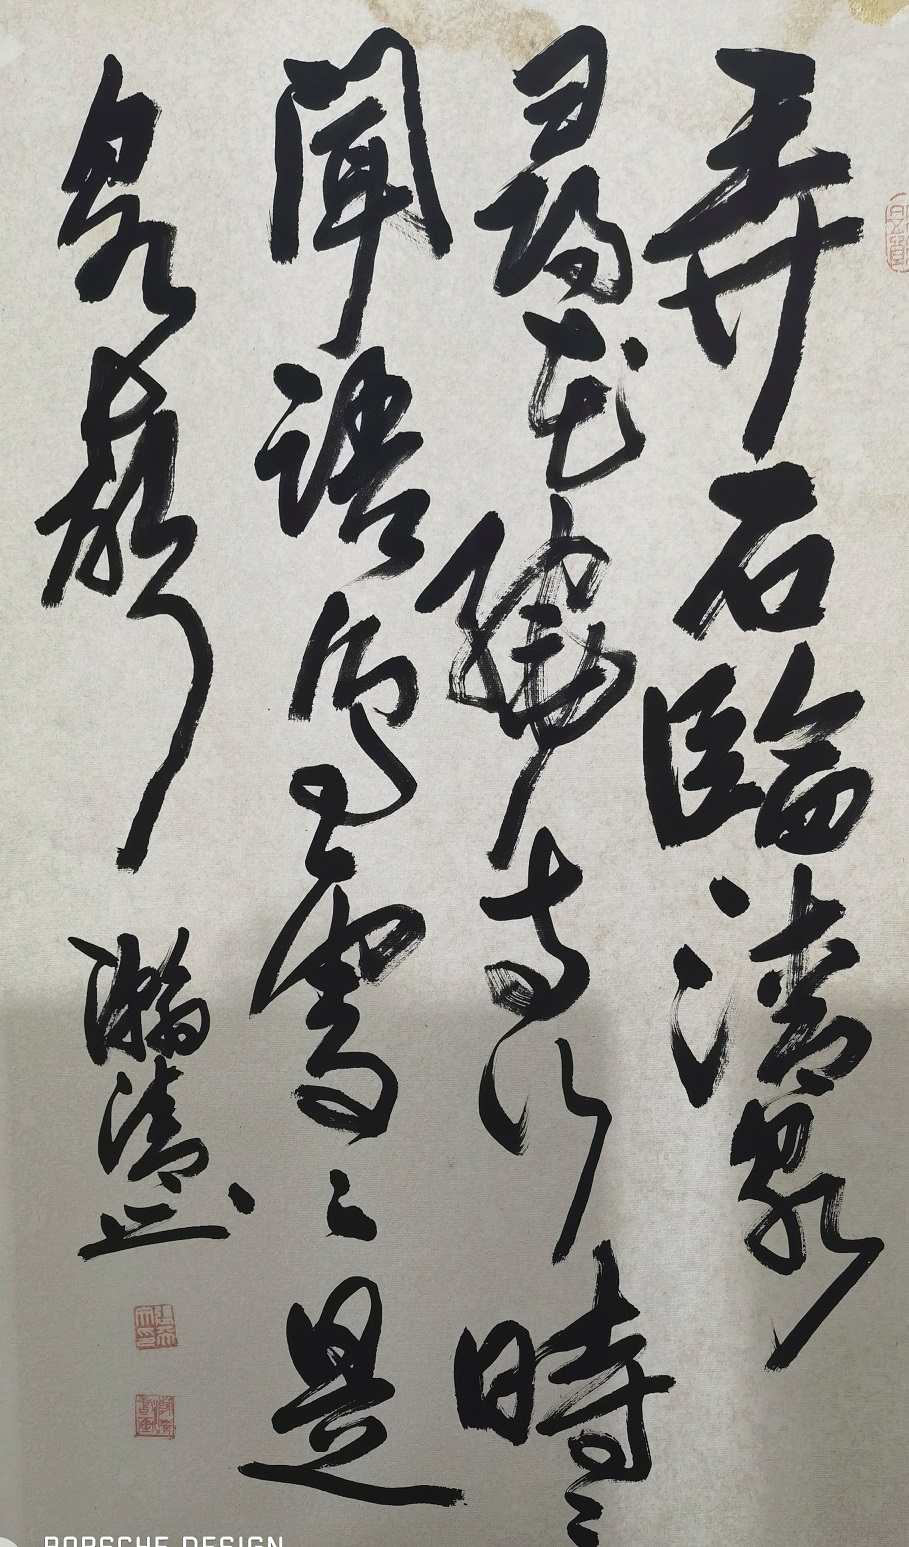 弄石臨清泉
尋花繞寺行時々
聞語鳥處々是
泉聲
瀚清
PORSCHE DESIGN